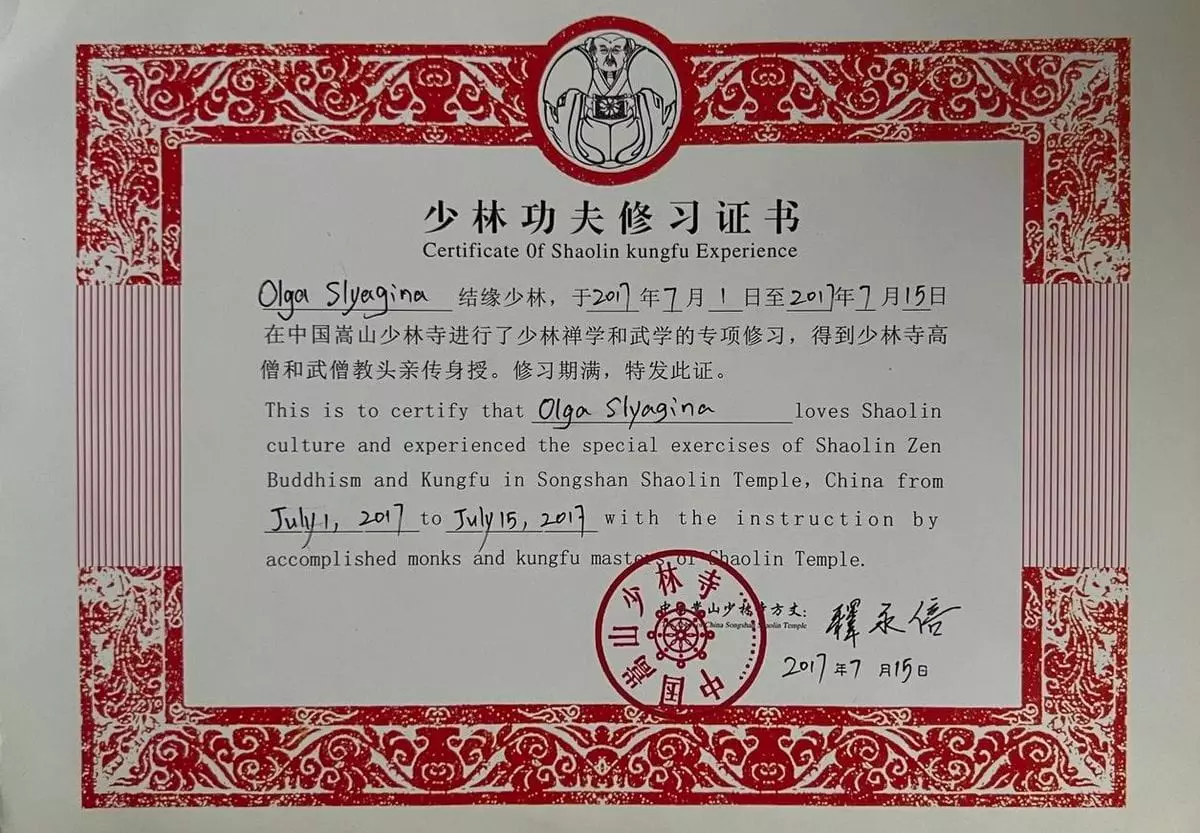 少林功夫修习证书
Certificate Of Shaolin kungfu Experience
Olga Slyagina 结缘少林，于2017年7月1日至2017年7月15日
在中国嵩山少林寺进行了少林禅学和武学的专项修习，得到少林寺高
僧和武僧教头亲传身授。修习期满，特发此证。
This is to certify that Olga Slyagina loves Shaolin
culture and experienced the special exercises of Shaolin Zen
Buddhism and Kungfu in Songshan Shaolin Temple, China from
July 1, 2017 to July 15, 2017 with the instruction by
accomplished monks and kungfu masters of Shaolin Temple.
中国嵩山少林寺方丈：
China Songshan Shaolin Temple
释永
2017年7月15日
中国嵩山少林寺